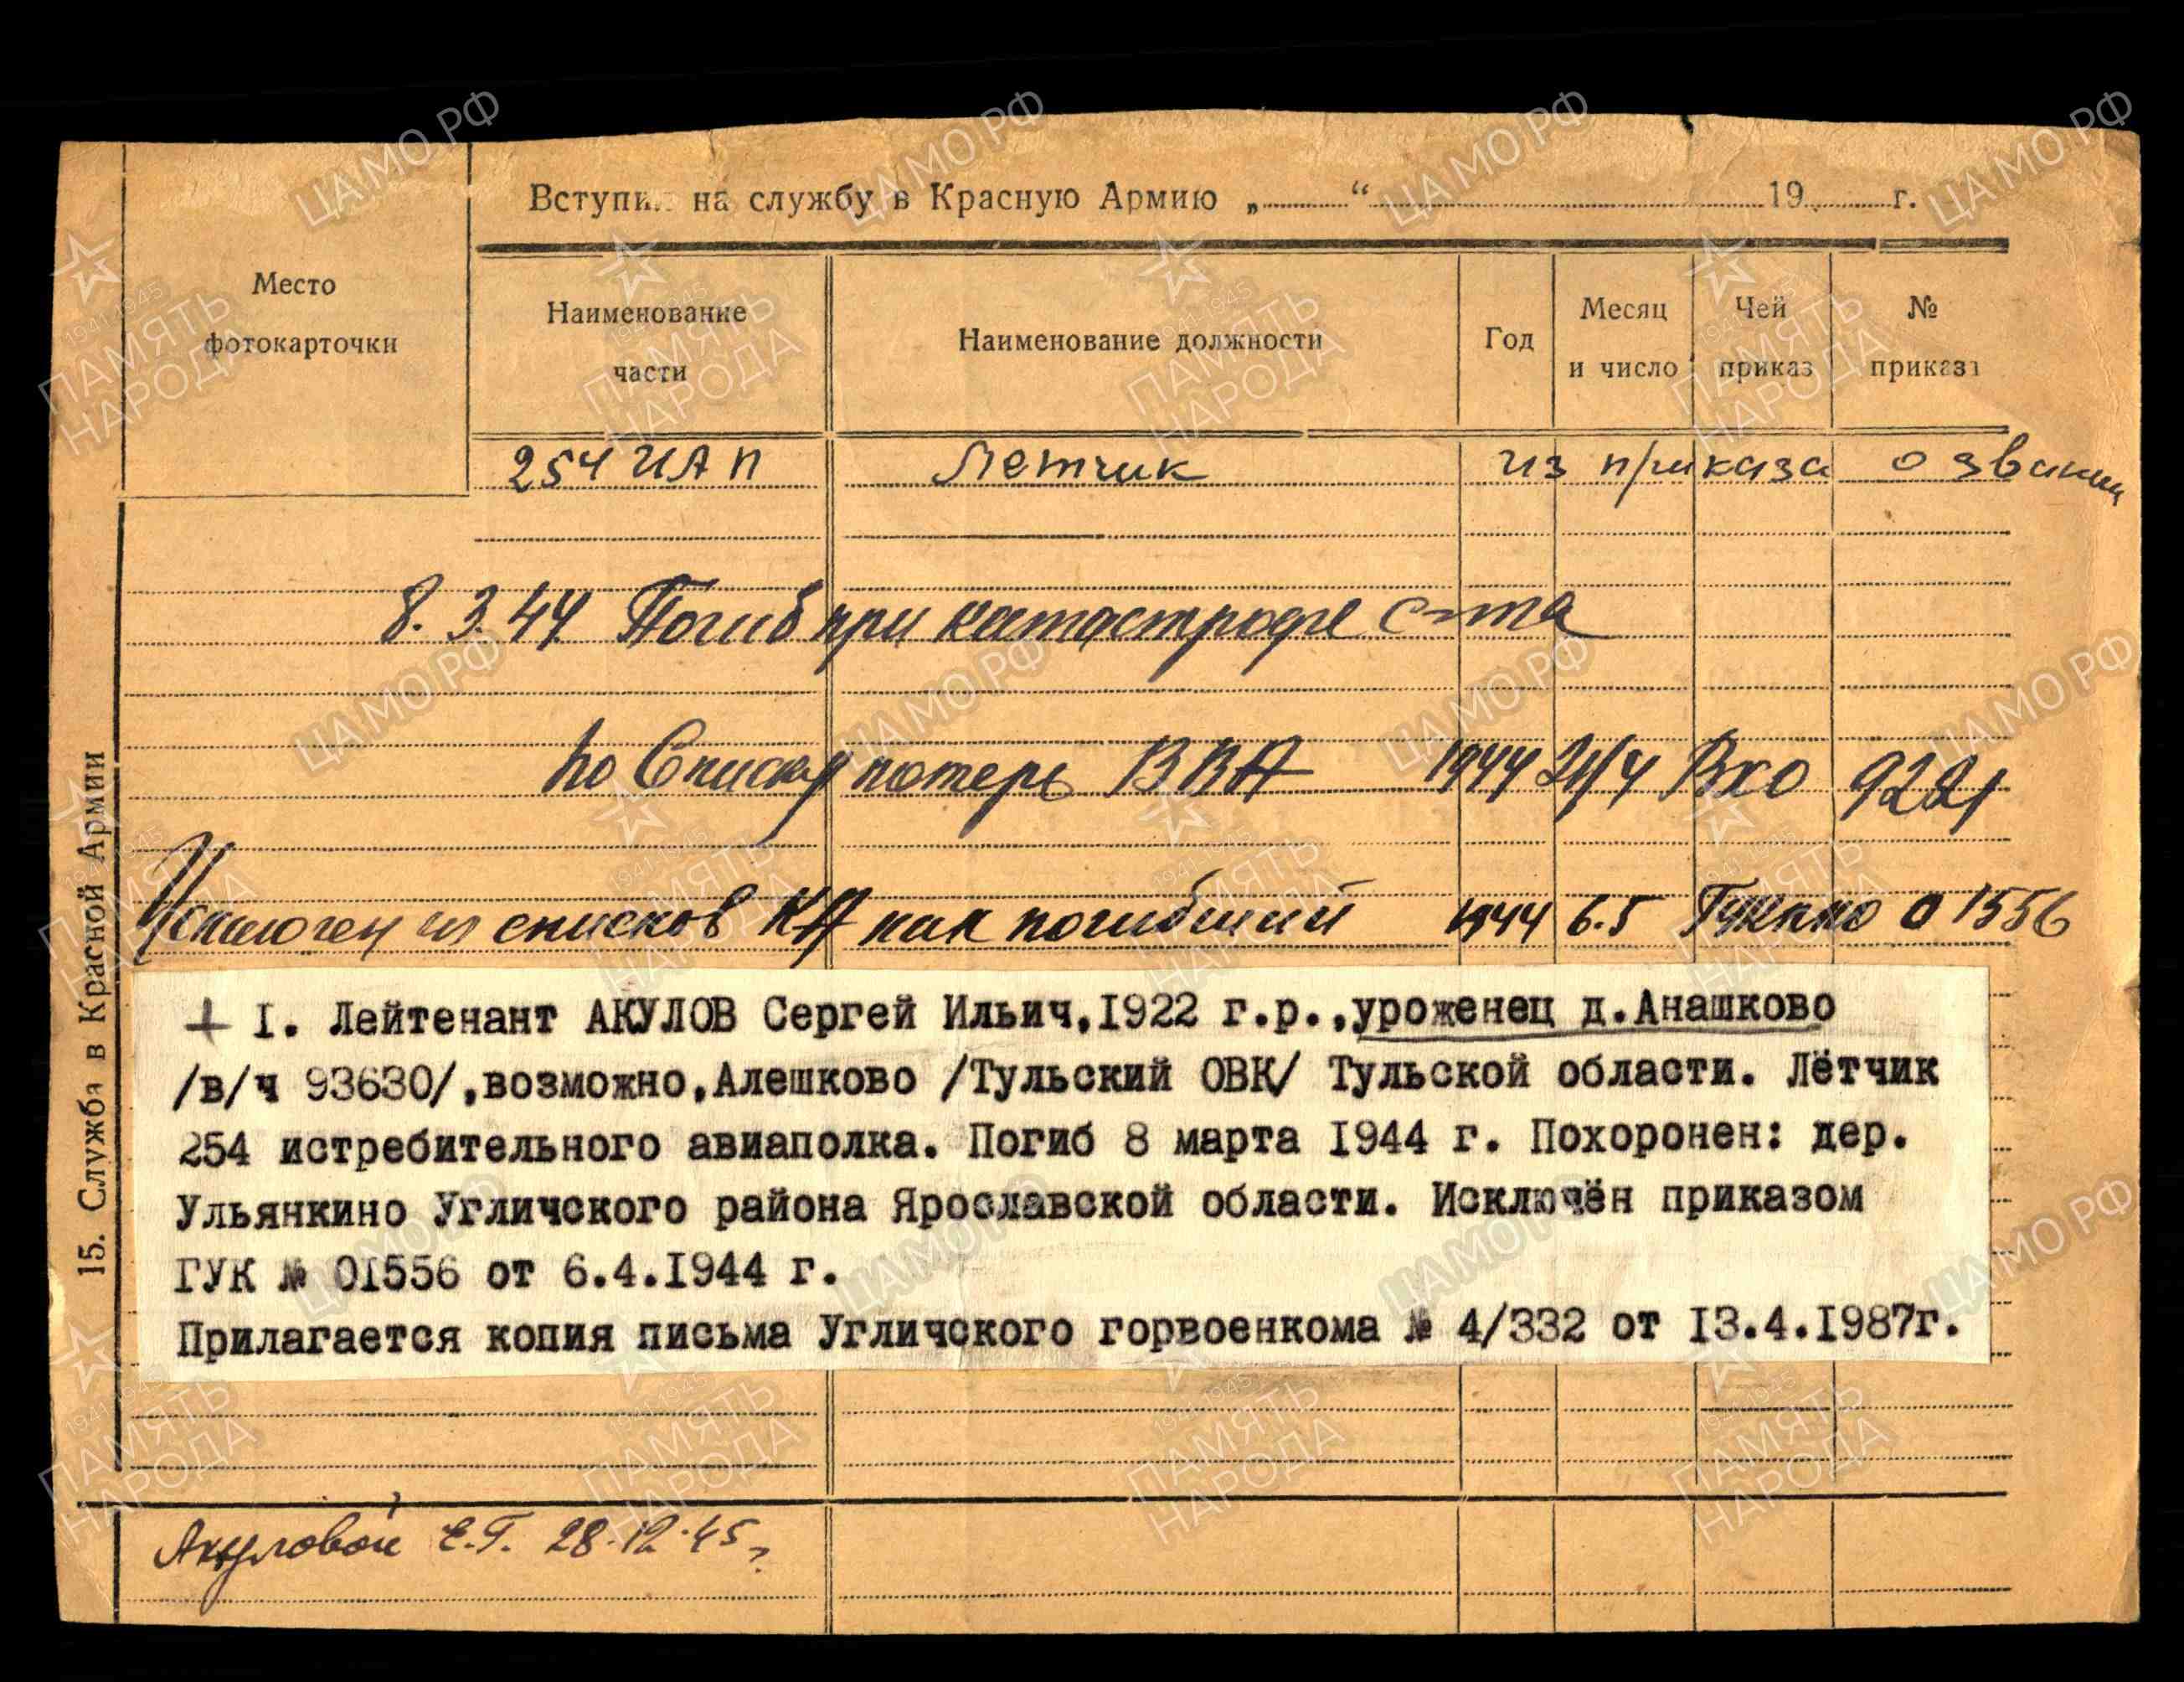 Вступил на службу в Красную Армию „ “ 19 г.
Место фотокарточки
Наименование части
Наименование должности
Год
Месяц и число
Чей приказ
№ приказа
254 ИАП Летчик из приказа о звании
8.3.44 Погиб при катастрофе с-та
по Списку потерь ВВА 1944 21/4 Вхо 9221
Исключен из списков КА как погибший 1944 6.5 01556
+ I. Лейтенант АКУЛОВ Сергей Ильич,1922 г.р.,уроженец д.Анашково
/в/ч 93630/,возможно,Алешково /Тульский ОВК/ Тульской области. Лётчик
254 истребительного авиаполка. Погиб 8 марта 1944 г. Похоронен: дер.
Ульянкино Угличского района Ярославской области. Исключён приказом
ГУК № 01556 от 6.4.1944 г.
Прилагается копия письма Угличского горвоенкома № 4/332 от 13.4.1987г.
15. Служба в Красной Армии
Акуловой Е.Г. 28.12.45
ЦАМО.РФ
ПАМЯТЬ НАРОДА
1941-1945